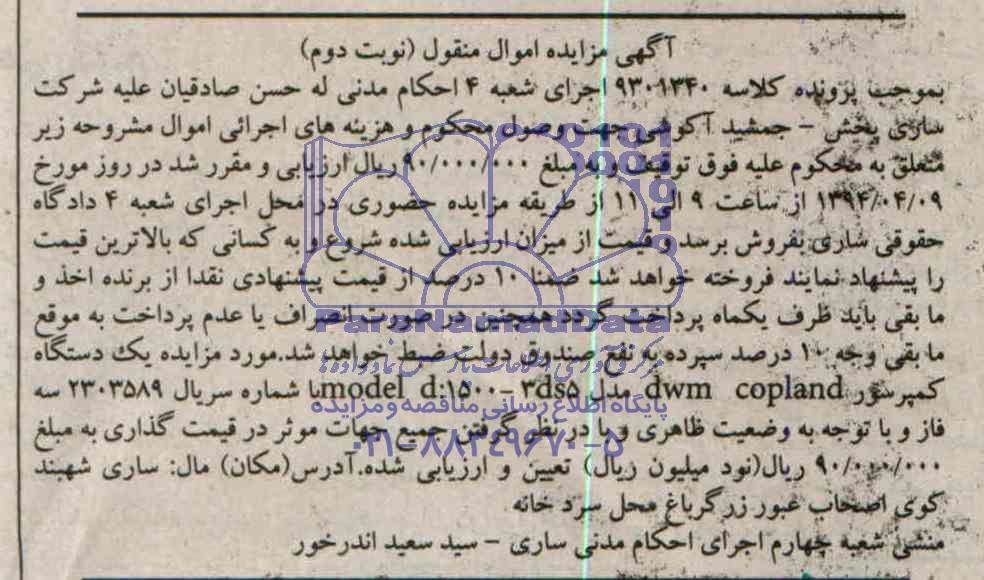 آگهی مزایده اموال منقول (نوبت دوم)
بموجب پرونده کلاسه ۹۳۰۱۳۴۰ اجرای شعبه ۴ احکام مدنی له حسن صادقیان علیه شرکت
ساری پخش - جمشید آکوشی جهت وصول محکوم و هزینه های اجرائی اموال مشروحه زیر
متعلق به محکوم علیه فوق توقیف و به مبلغ ۹۰/۰۰۰/۰۰۰ ریال ارزیابی و مقرر شد در روز مورخ
۱۳۹۴/۰۴/۰۹ از ساعت ۹ الی ۱۱ از طریقه مزایده حضوری در محل اجرای شعبه ۴ دادگاه
حقوقی ساری بفروش برسد و قیمت از میزان ارزیابی شده شروع و به کسانی که بالاترین قیمت
را پیشنهاد نمایند فروخته خواهد شد ضمنا ۱۰ درصد از قیمت پیشنهادی نقدا از برنده اخذ و
ما بقی باید ظرف یکماه پرداخت گردد همچنین در صورت انصراف یا عدم پرداخت به موقع
ما بقی وجه ۱۰ درصد سپرده به نفع صندوق دولت ضبط خواهد شد.مورد مزایده یک دستگاه
کمپرسور dwm copland مدل model d:۱۵۰۰- ۳ds۵ با شماره سریال ۲۳۰۳۵۸۹ سه
فاز و با توجه به وضعیت ظاهری و با در نظر گرفتن جمیع جهات موثر در قیمت گذاری به مبلغ
۹۰/۰۰۰/۰۰۰ ریال(نود میلیون ریال) تعیین و ارزیابی شده.آدرس(مکان) مال: ساری شهبند
کوی اصحاب عبور زرگرباغ محل سرد خانه
منشی شعبه چهارم اجرای احکام مدنی ساری - سید سعید اندرخور
ParsNamadData
مرکز فرآوری اطلاعات پارس نماد داده ها
پایگاه اطلاع رسانی مناقصه و مزایده
۰۲۱-۸۸۳۴۹۶۷۰-۵